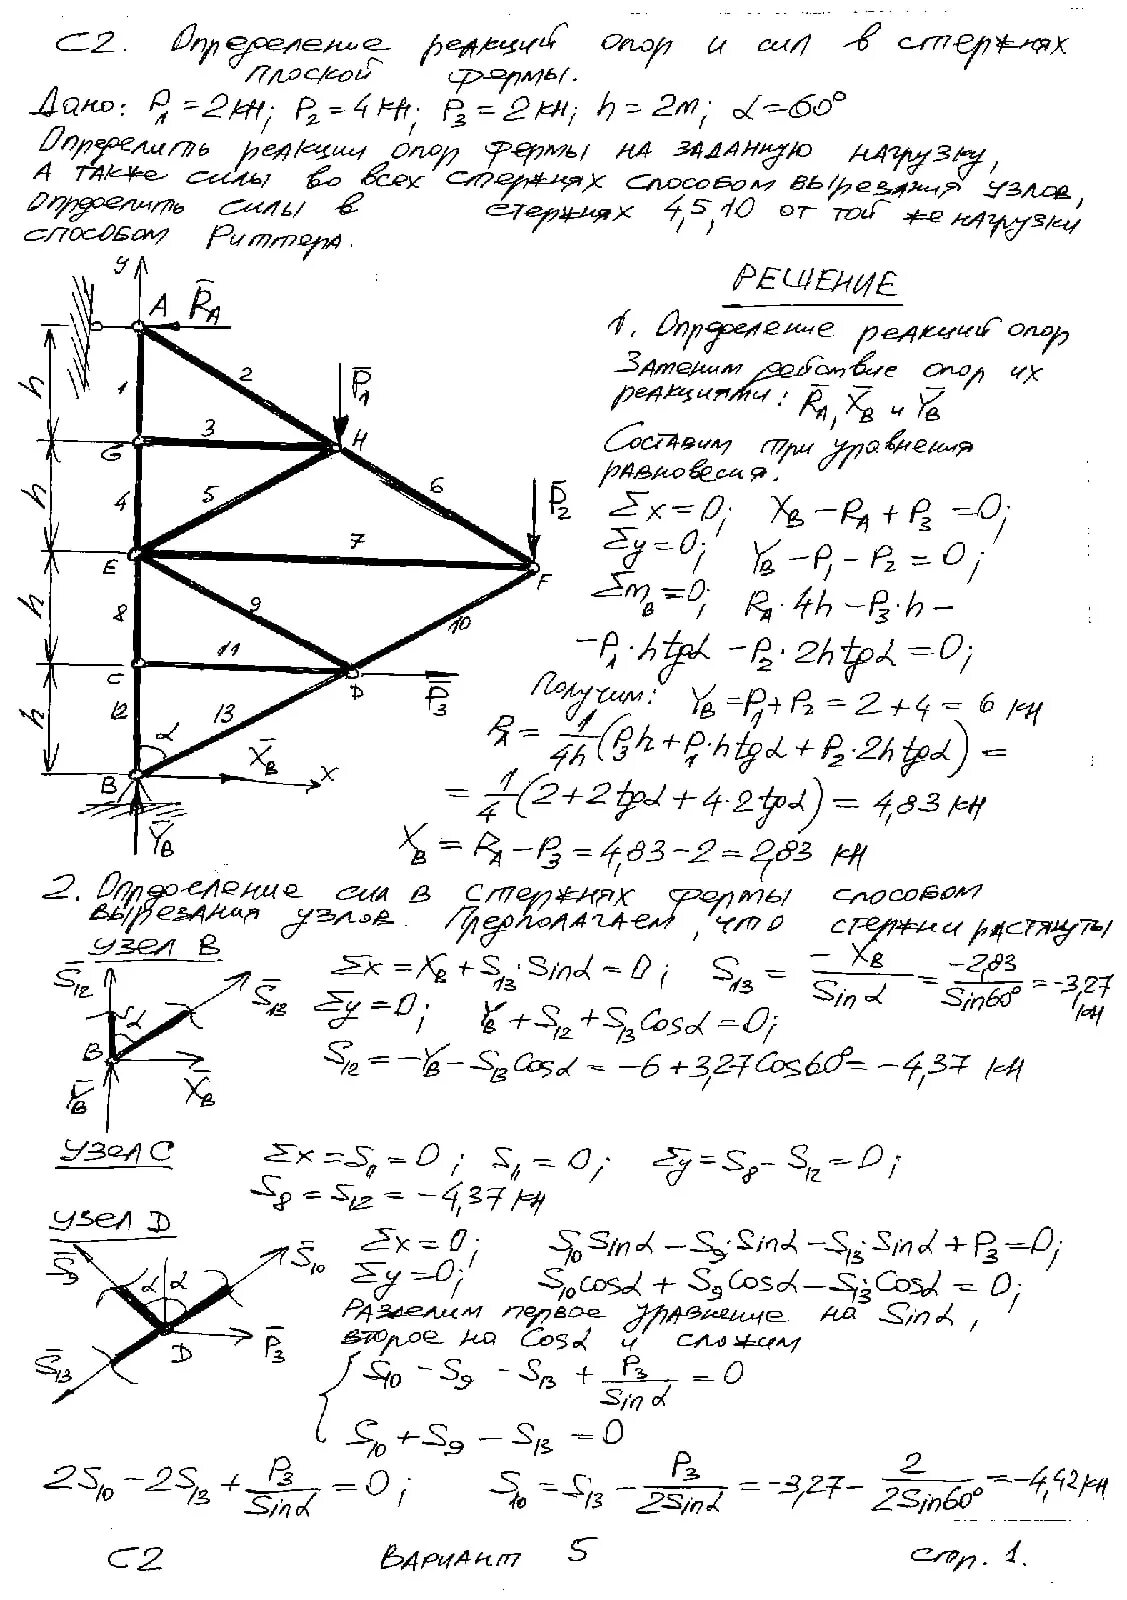 С2. Определение реакций опор и сил в стержнях
плоской фермы.
Дано: P₁=2кН; P₂=4кН; P₃=2кН; h=2м; α=60°
Определить реакции опор фермы на заданную нагрузку,
а также силы во всех стержнях способом вырезания узлов,
Определить силы в стержнях 4,5,10 от той же нагрузки
способом Риттера.
РЕШЕНИЕ
1. Определение реакций опор
Заменим действие опор их
реакциями: R̅A, X̅B и Y̅B
Составим три уравнения
равновесия.
Σx=0; XB-RA+P₃=0;
Σy=0; YB-P₁-P₂=0;
ΣmB=0; RA·4h-P₃·h-
-P₁·htgα-P₂·2htgα=0;
Получим: YB=P₁+P₂=2+4=6 кН
RA=1/4h(P₃h+P₁·htgα+P₂·2htgα)=
=1/4(2+2tgα+4·2tgα)=4,83 кН
XB=RA-P₃=4,83-2=2,83 кН
y
A
R̅A
h
1
2
P̅₁
3
G
H
h
4
5
6
P̅₂
7
E
F
h
8
9
10
11
C
D
P̅₃
h
12
13
α
X̅B
B
x
Y̅B
2. Определение сил в стержнях фермы способом
вырезания узлов. Предполагаем, что стержни растянуты
УЗЕЛ В
S̅₁₂
α
S̅₁₃
B
Y̅B
X̅B
Σx=XB+S₁₃·Sinα=0; S₁₃=-XB/Sinα=-2,83/Sin60°=-3,27 кН
Σy=0; YB+S₁₂+S₁₃Cosα=0;
S₁₂=-YB-S₁₃Cosα=-6+3,27Cos60°=-4,37 кН
УЗЕЛ С
Σx=S₁₁=0; S₁₁=0; Σy=S₈-S₁₂=0;
S₈=S₁₂=-4,37 кН
УЗЕЛ D
S̅₉
α
α
S̅₁₀
P̅₃
D
S̅₁₃
Σx=0; S₁₀Sinα-S₉·Sinα-S₁₃·Sinα+P₃=0;
Σy=0; S₁₀cosα+S₉Cosα-S₁₃Cosα=0;
Разделим первое уравнение на Sinα,
второе на Cosα и сложим
S₁₀-S₉-S₁₃+P₃/Sinα=0
S₁₀+S₉-S₁₃=0
2S₁₀-2S₁₃+P₃/Sinα=0; S₁₀=S₁₃-P₃/2Sinα=-3,27-2/2Sin60°=-4,42 кН
С2 ВАРИАНТ 5 стр. 1.